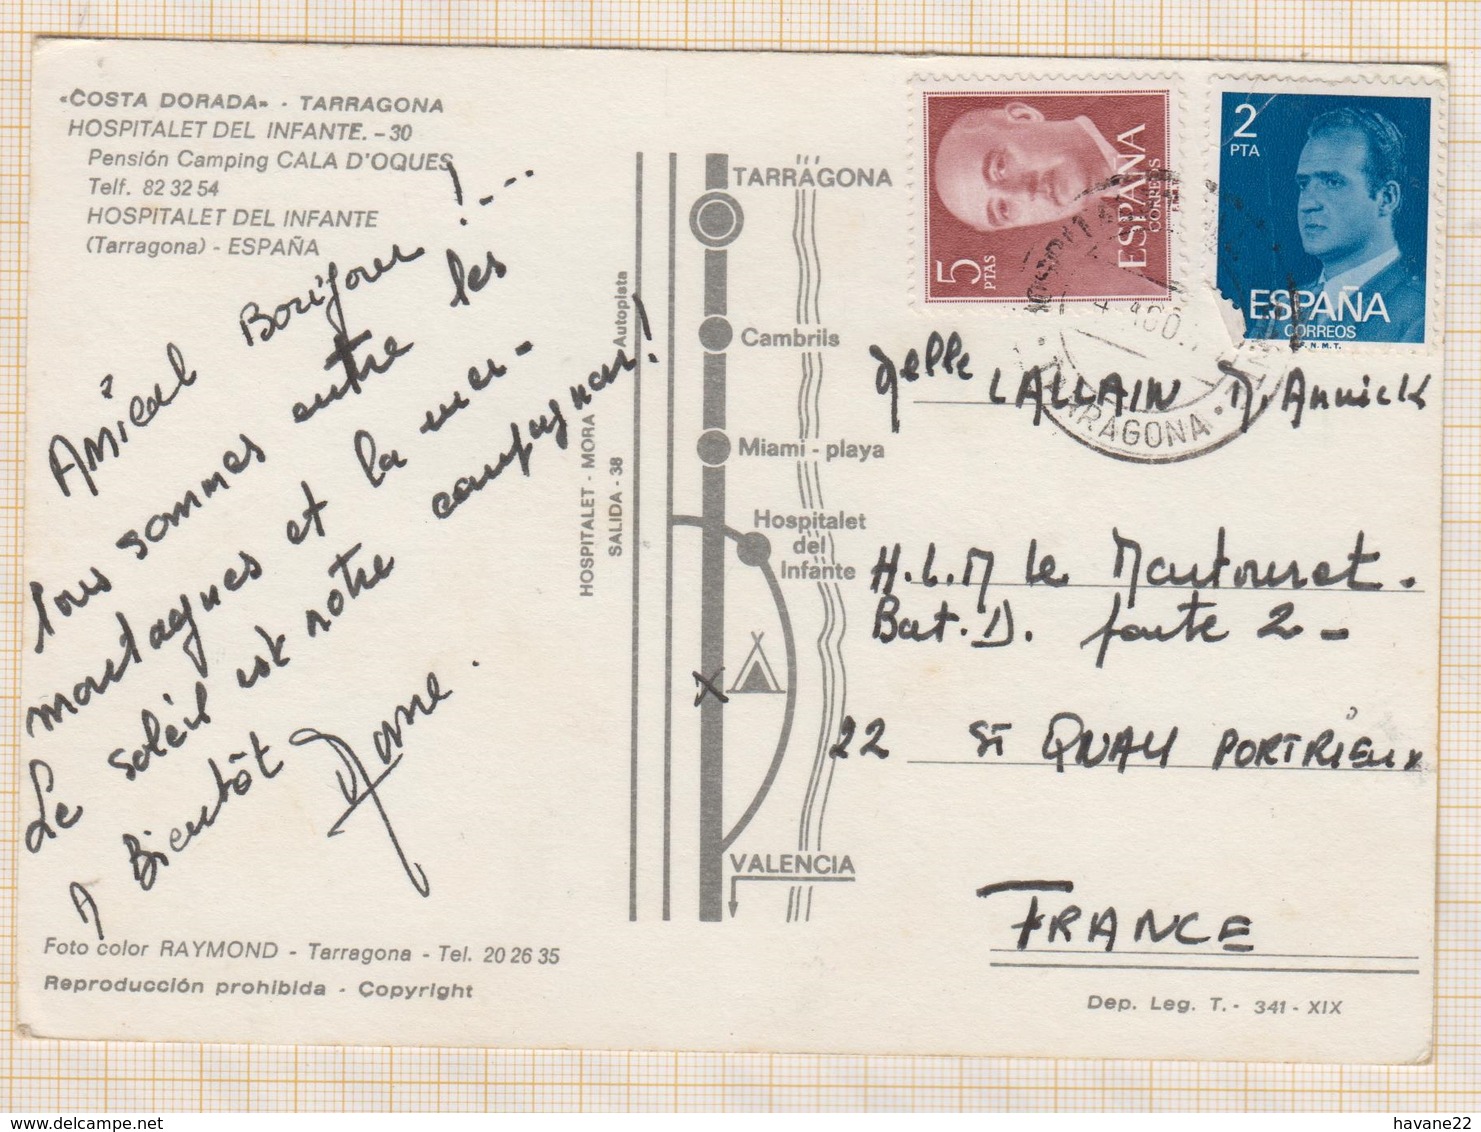 «COSTA DORADA» - TARRAGONA
HOSPITALET DEL INFANTE. - 30
Pensión Camping CALA D'OQUES
Telf. 82 32 54
HOSPITALET DEL INFANTE
(Tarragona) - ESPAÑA
Amical Bonjour !...
Nous sommes entre les
montagnes et la mer -
Le soleil est notre compagnon !
A Bientôt
Foto color RAYMOND - Tarragona - Tel. 20 26 35
Reproducción prohibida - Copyright
Autopista
HOSPITALET - MORA
SALIDA - 38
TARRAGONA
Cambrils
Miami - playa
Hospitalet
del
Infante
X
VALENCIA
5
PTAS
ESPAÑA
CORREOS
2
PTA
ESPAÑA
CORREOS
F.N.M.T.
TARRAGONA
Melle LALLAIN M. Annick
H.L.M le
Bat. D. porte 2 -
22 St QUAY PORTRIEUX
FRANCE
Dep. Leg. T. - 341 - XIX
havane22